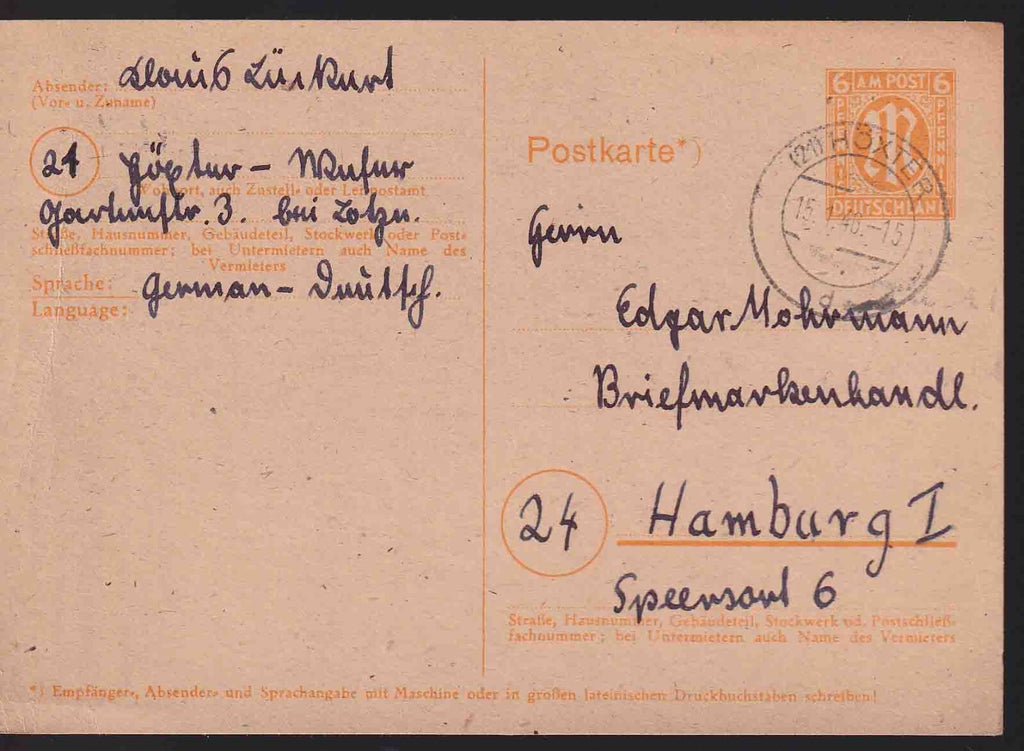 Absender: Klaus Lückert
(Vor= u. Zuname)
21 Höxter – Weser
Wohnort, auch Zustell= oder Leitpostamt
Gartenstr. 3. bei Lotze.
Straße, Hausnummer, Gebäudeteil, Stockwerk oder Post=
schließfachnummer; bei Untermietern auch Name des
Vermieters
Sprache: German – Deutsch.
Language:
Postkarte*)
6 AM POST 6
PFENNIG PFENNIG
DEUTSCHLAND
(21) HÖXTER
46.–15
d
Herrn
Edgar Mohrmann
Briefmarkenhandl.
24 Hamburg I
Speersort 6
Straße, Hausnummer, Gebäudeteil, Stockwerk od. Postschließ=
fachnummer; bei Untermietern auch Name des Vermieters
*) Empfänger=, Absender= und Sprachangabe mit Maschine oder in großen lateinischen Druckbuchstaben schreiben!